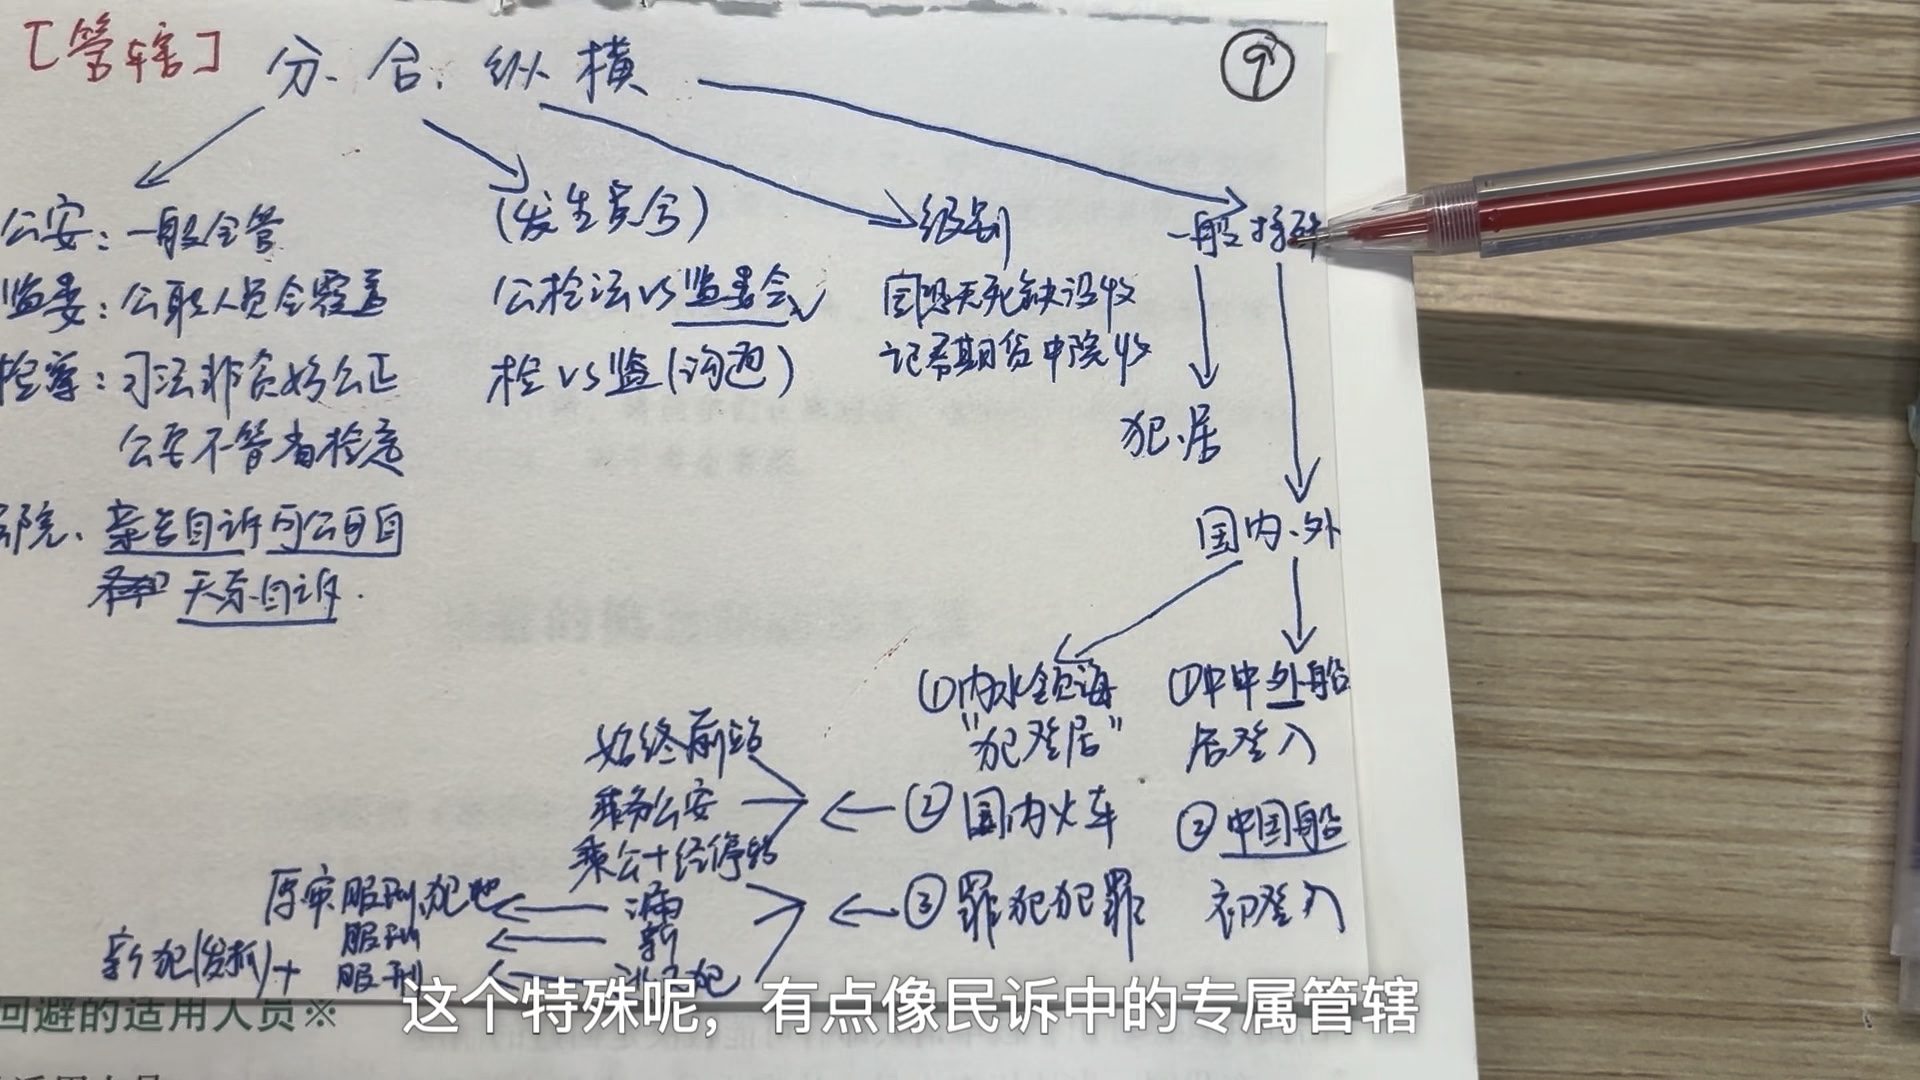 [管辖] 分、合、纵 横
⑨
公安:一般全管
监委:公职人员全覆盖
检察:司法非负好公正
公安不管省检定
法院、亲告自诉可公可自
天系自诉.
(发生竞合)
公检法 VS 监委会
检 VS 监(沟通)
级别
国恐无死缺没收
记君期货中院收
一般 特殊
犯、居
国内、外
①内水领海
"犯登居"
②国内火车
③罪犯犯罪
①中中外船
后登入
②中国船
初登入
始终前站
乘务公安
乘公+经停站
漏
新
原审 服刑 犯地
服刑
新犯(发抓)+ 服刑
这个特殊呢，有点像民诉中的专属管辖
回避的适用人员※